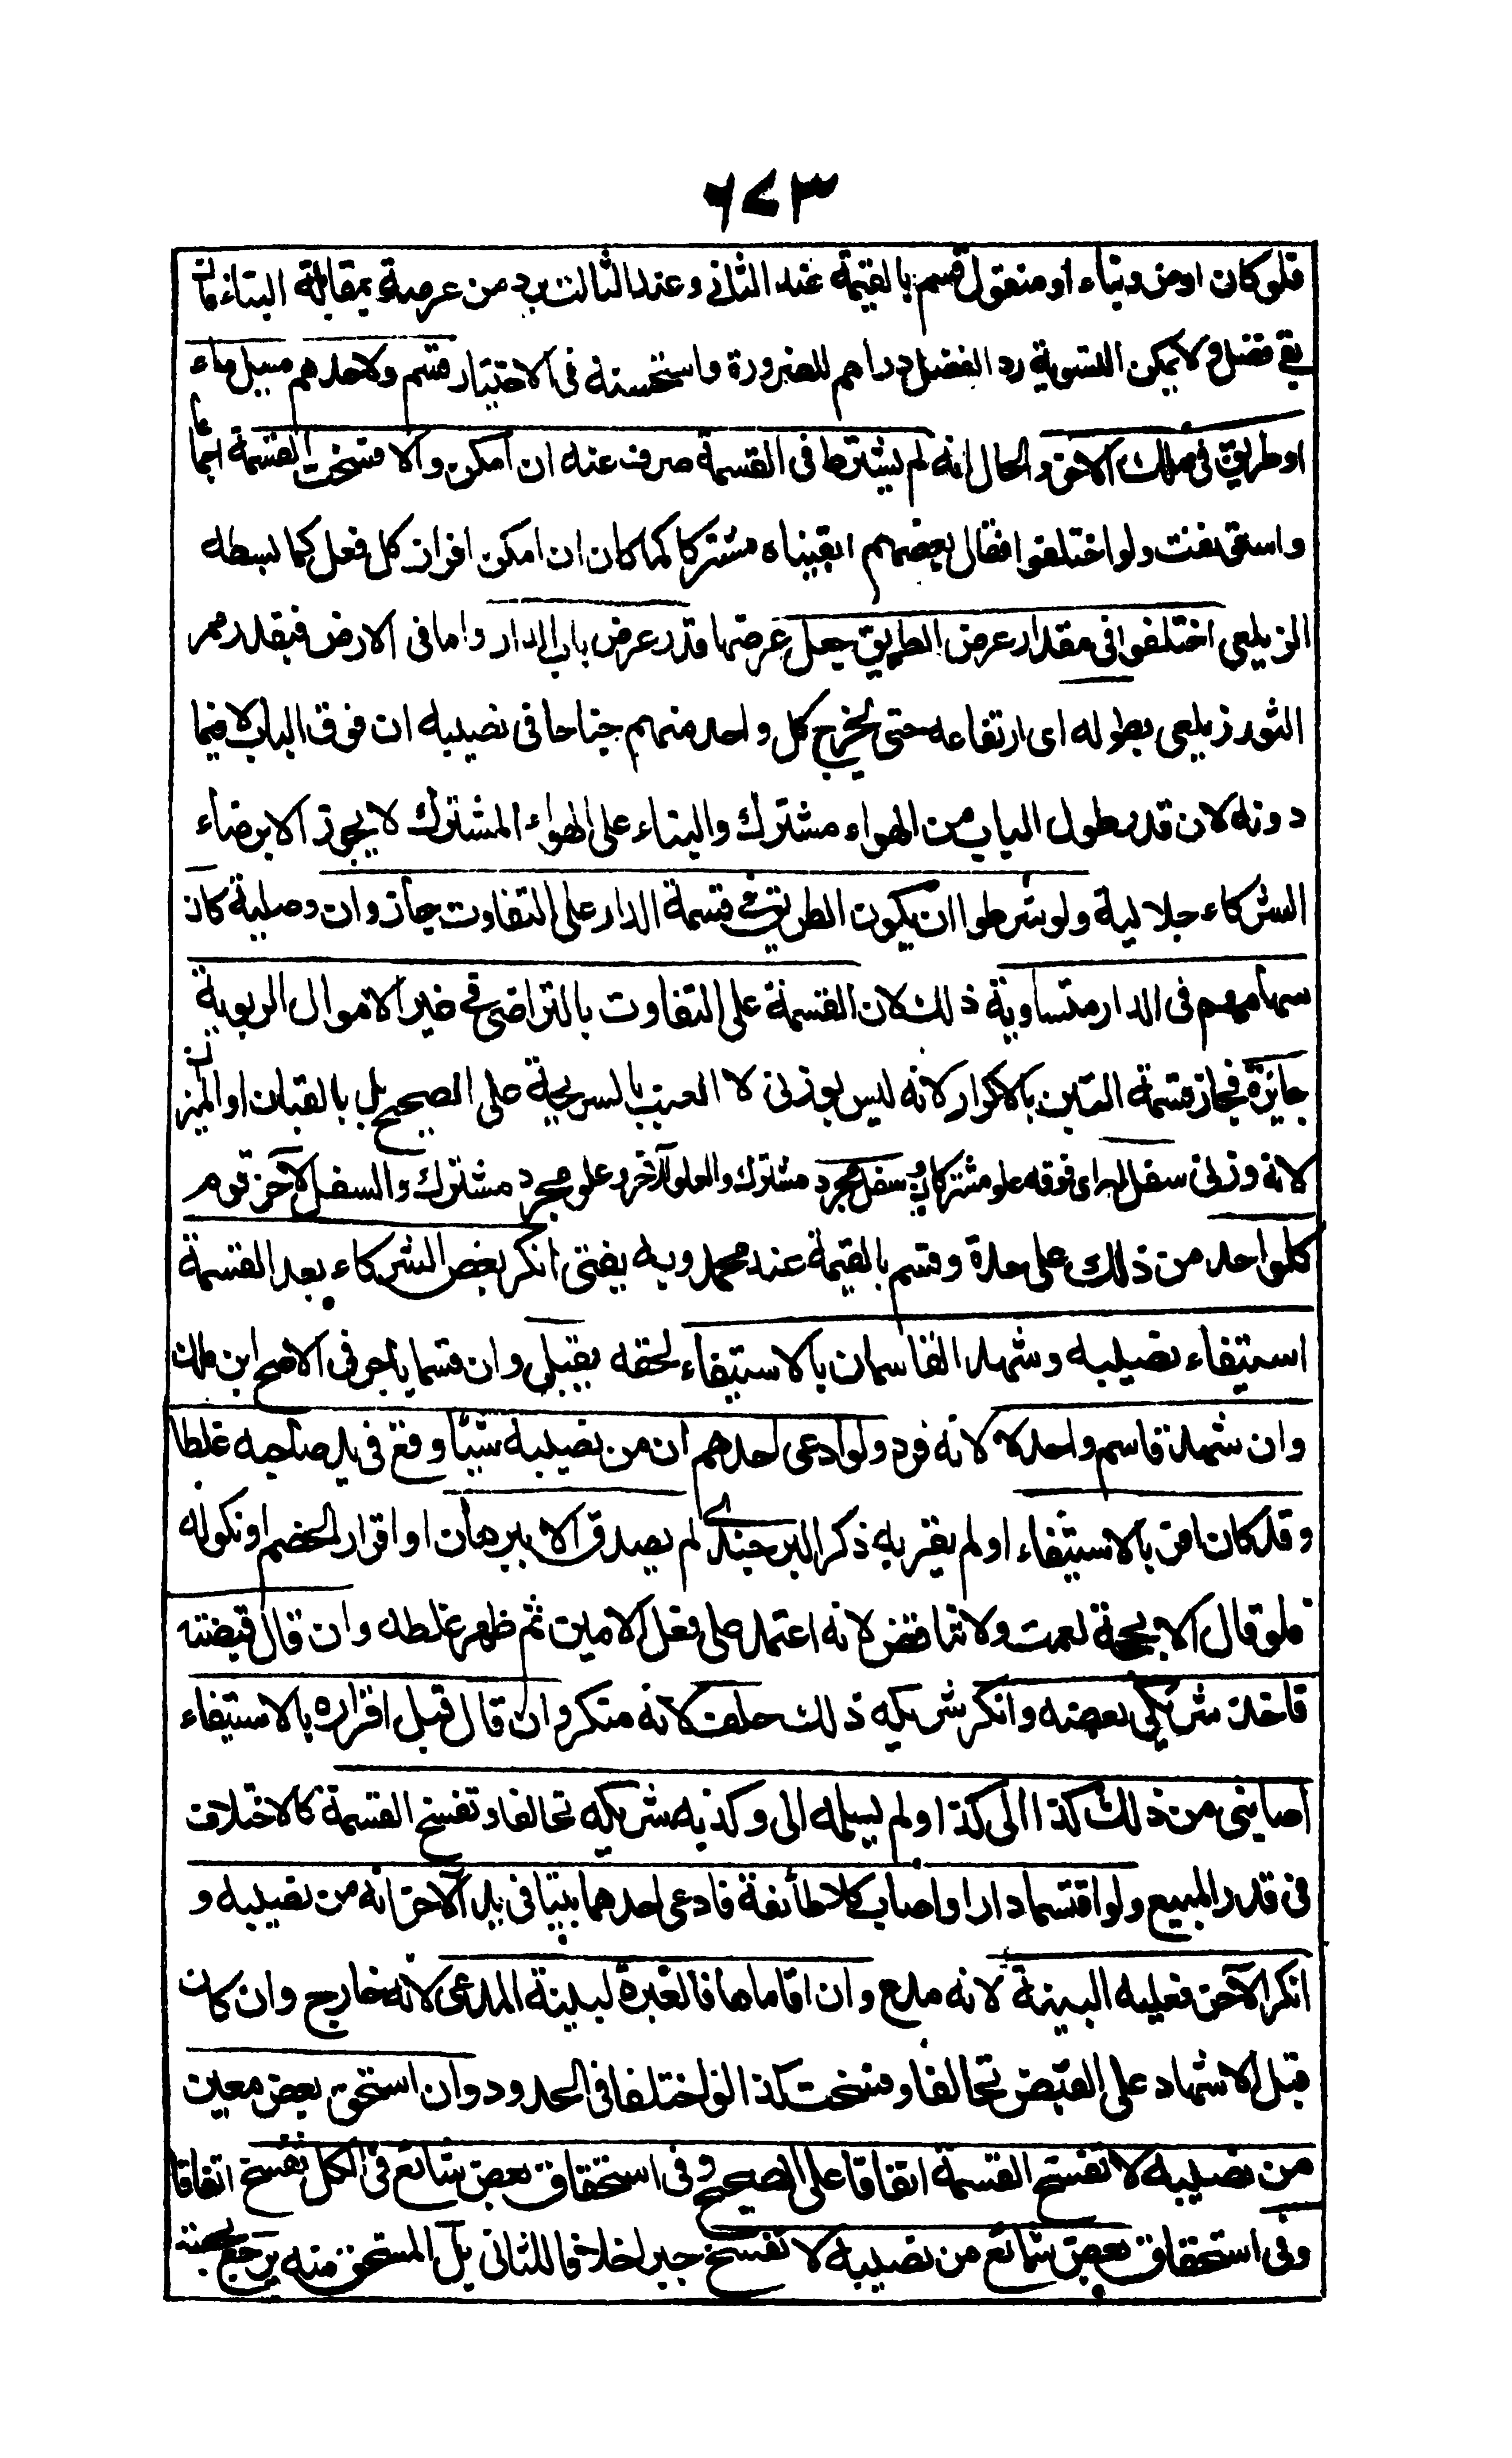 ٦٧٣
فلو كان ارض وبناء او منقول قسم بالقيمة عند الثاني وعند الثالث يرد من عرصة بمقابلة البناء فان
بقي فضل ولا يمكن التسوية رد الفضل دراهم للضرورة واستحسنه في الاختيار قسم ولاحدهم مسيل ماء
او طريق في ملك الآخر والحال انه لم يشترط في القسمة صرف عنه ان امكن والا فسخت القسمة اجماعا
واستؤنفت ولو اختلفوا فقال بعضهم ابقيناه مشتركا كما كان ان امكن افراز كل فعل كما بسطه
الزيلعي اختلفوا في مقدار عرض الطريق جعل عرضها قدر عرض باب الدار واما في الارض فبقدر ممر
الثور زيلعي بطوله اى ارتفاعه حتى يخرج كل واحد منهم جناحا في نصيبه ان فوق الباب لا فيما
دونه لان قدر طول الباب من الهواء مشترك والبناء على الهواء المشترك لا يجوز الا برضاء
الشركاء جلالية ولو شرطوا ان يكون الطريق في قسمة الدار على التفاوت جاز وان وصلية كان
سهامهم في الدار متساوية ذلك لان القسمة على التفاوت بالتراضي في غير الاموال الربوية
جايزة فجاز قسمة التبن بالاكوار لانه ليس بوزني لا العنب بالسريجة على الصحيح بل بالقبان او الميزان
لانه وزني سفل له اى فوقه علو مشتركان وسفل مجرد مشترك والعلو لآخر وعلو مجرد مشترك والسفل لآخر قوم
كل واحد من ذلك على حدة وقسم بالقيمة عند محمد وبه يفتى انكر بعض الشركاء بعد القسمة
استيفاء نصيبه وشهد القاسمان بالاستيفاء لحقه يقبل وان قسما باجر في الاصح ابن ملك
وان شهد قاسم واحد لا لانه فرد ولو ادعى احدهم ان من نصيبه شيئا وقع في يد صاحبه غلطا
وقد كان اقر بالاستيفاء او لم يقر به ذكر البرجندي لم يصدق الا ببرهان او اقرار الخصم او نكوله
فلو قال الا بحجة لعمت ولا تناقض لانه اعتمد على فعل الامين ثم ظهر غلطه وان قال قبضته
فاخذ شريكي بعضه وانكر شريكه ذلك حلف لانه منكر وان قال قبل اقراره بالاستيفاء
اصابني من ذلك كذا الى كذا ولم يسلمه الى وكذبه شريكه تحالفا وتفسخ القسمة كالاختلاف
في قدر المبيع ولو اقتسما دارا واصاب كلا طائفة فادعى احدهما بيتا في يد الآخر انه من نصيبه و
انكر الآخر فعليه البينة لانه مدع وان اقاماها فالعبرة لبينة المدعي لانه خارج وان كان
قبل الاشهاد على القبض تحالفا وفسخت كذا لو اختلفا في الحدود وان استحق بعض معين
من نصيبه لا تفسخ القسمة اتفاقا على الصحيح وفي استحقاق بعض شائع في الكل تفسخ اتفاقا
وفي استحقاق بعض شائع من نصيبه لا تفسخ جبرا خلافا للثاني بل المستحق منه يرجع بحصته